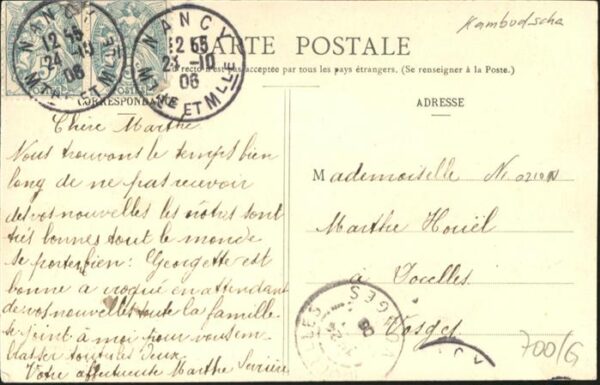 Kambodscha
NANCY
12 55
24 -10
06
MTHE ET MLLE
NANCY
12 55
23 -10
06
MTHE ET MLLE
CARTE POSTALE
recto n'est pas acceptée par tous les pays étrangers. (Se renseigner à la Poste.)
CORRESPONDANCE
ADRESSE
Chère Marthe
Nous trouvons le temps bien
long de ne pas recevoir
de vos nouvelles les nôtres sont
très bonnes tout le monde
se porte bien : Georgette est
bonne à croquer en attendant
de vos nouvelles toute la famille
se joint à moi pour vous em
brasser toutes les deux
Votre affectueuse Marthe
Mademoiselle
Marthe Houël
à
Vosges
VOSGES
06
700/G